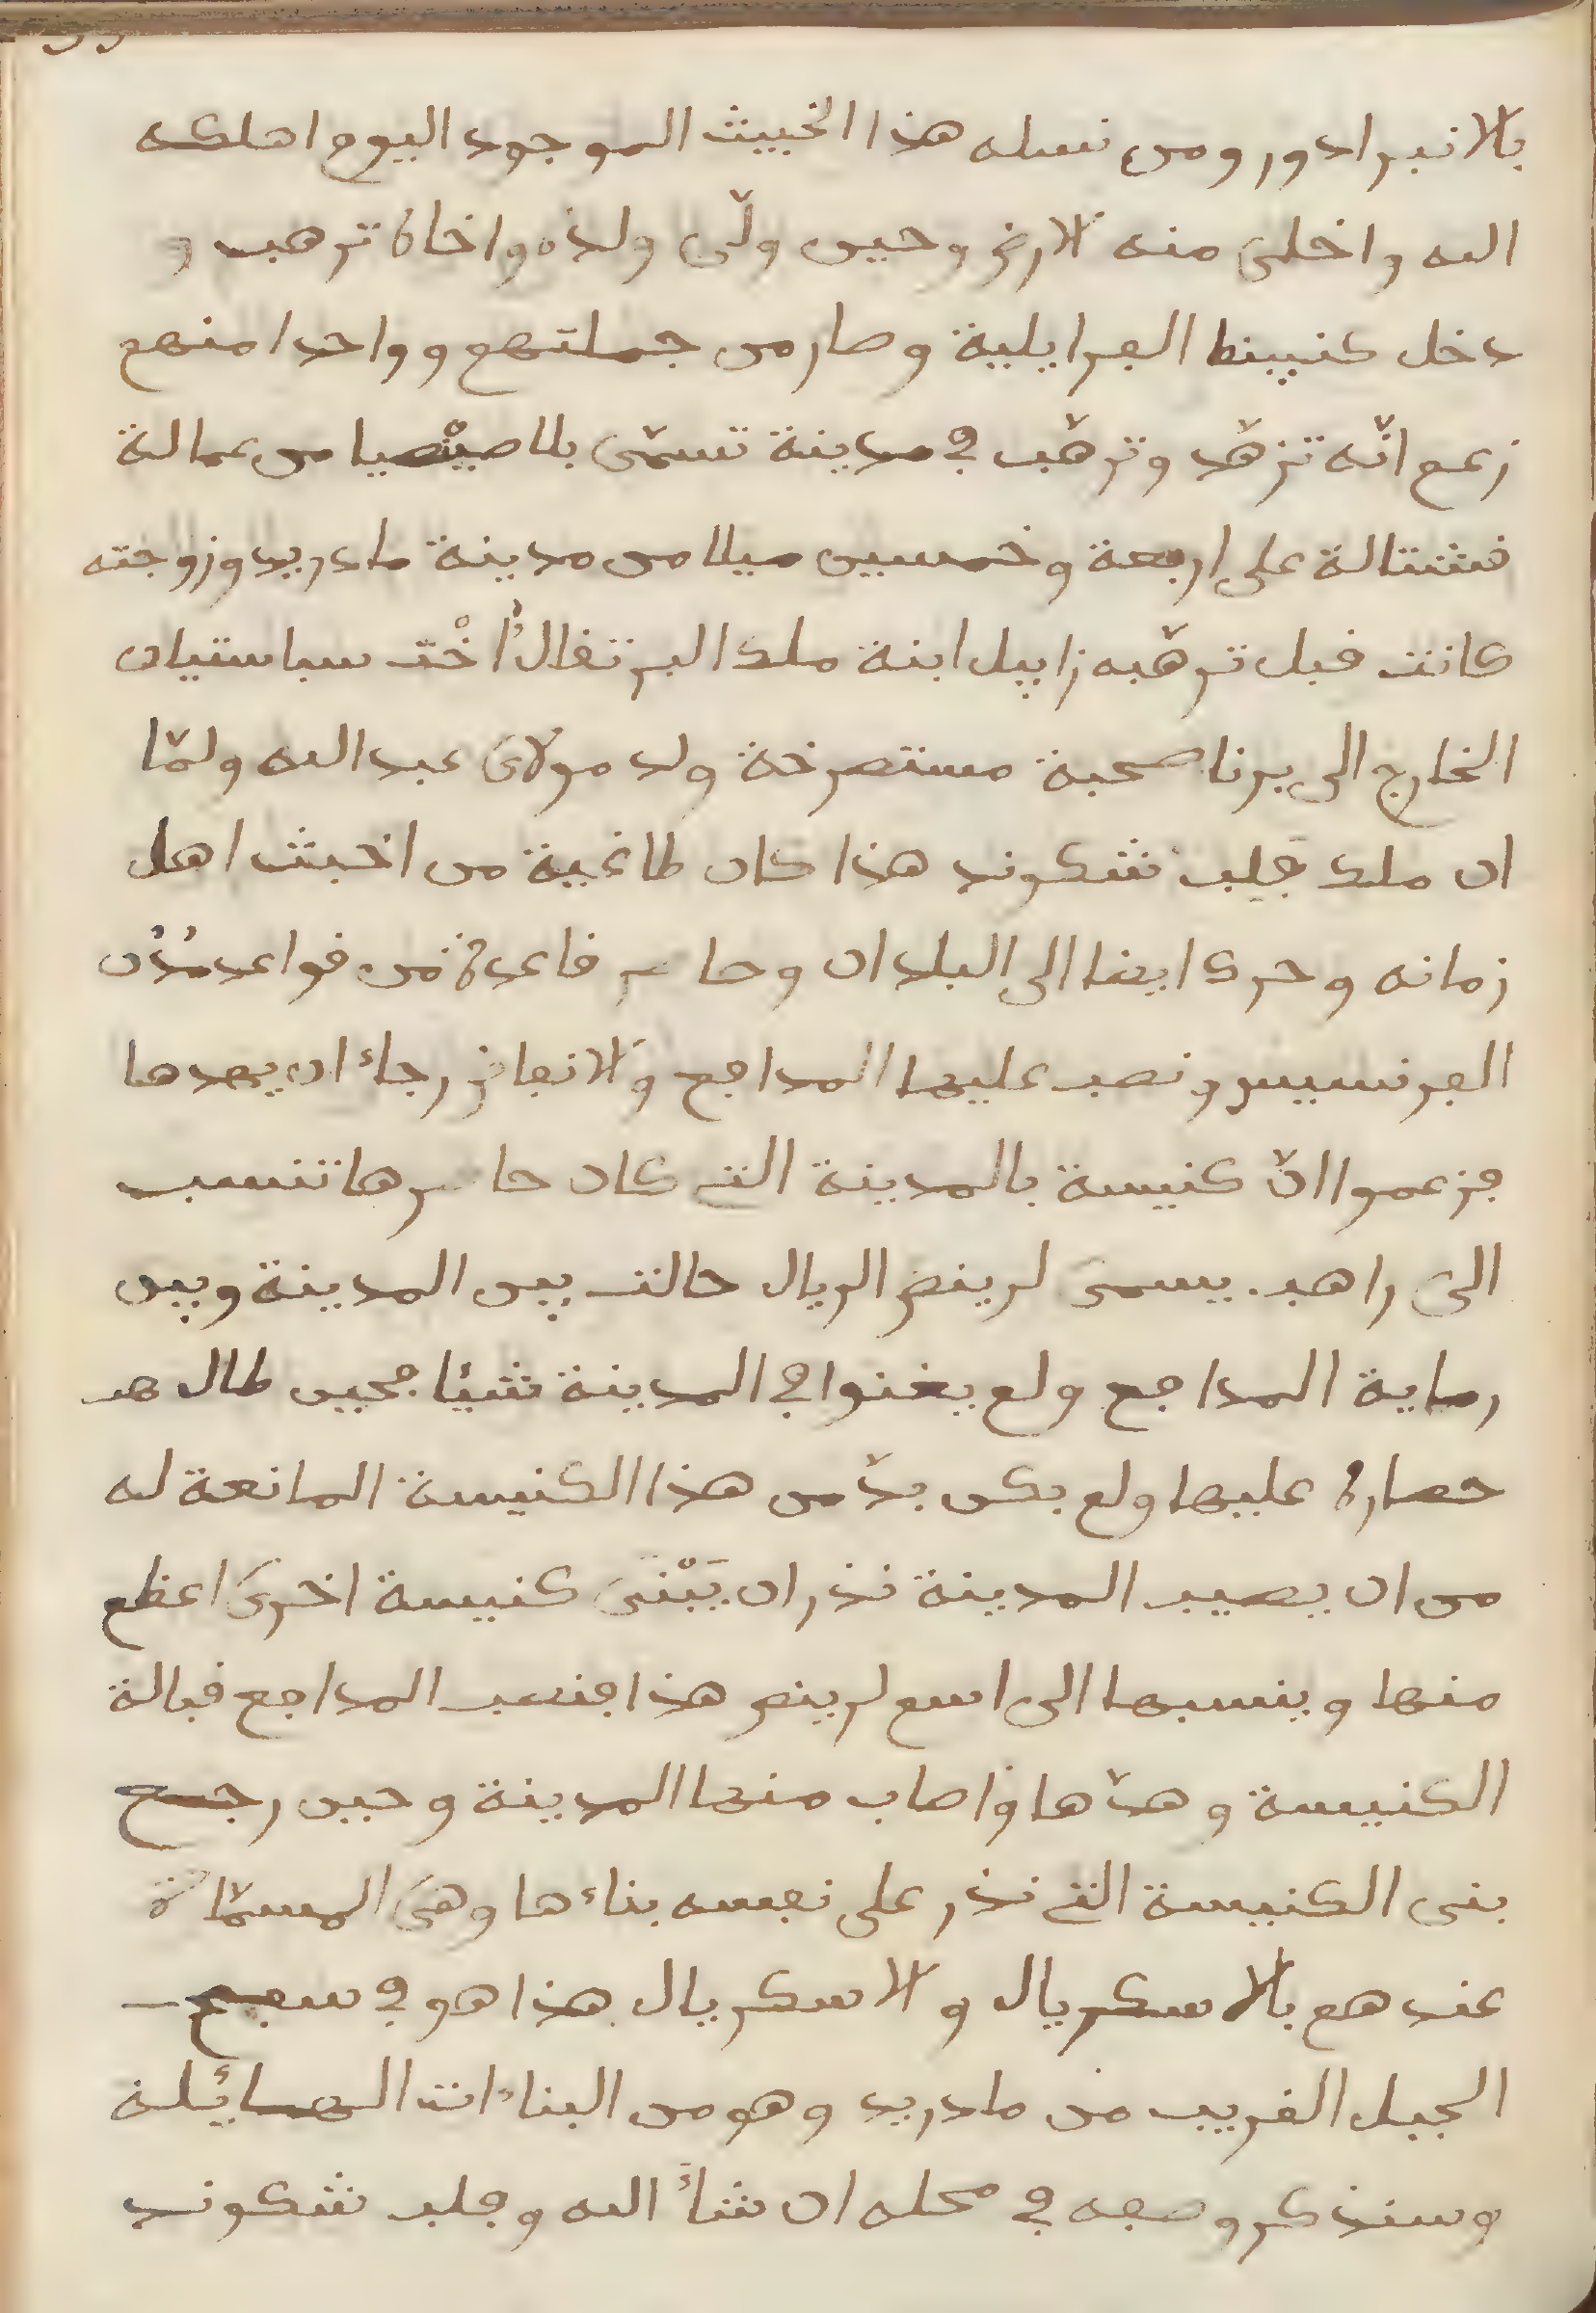 بالانبرادور ومن نسله هذا الخبيث الموجود اليوم اهلكه
الله واخلى منه الارض وحين ولّى ولده واخاه ترهب و
دخل كنيينط الفرايلية وصار من جملتهم وواحدا منهم
زعم انّه تزهّد وترهّب في مدينة تسمّى بلاصينصيا من عمالة
قشتالة على اربعة وخمسين ميلا من مدينة مادريد وزوجته
كانت قبل ترهّبه زابيل ابنة ملك البرتقال أُخْت سباستيان
الخارج الى برنا صحبة مستصرخة ولد مولاى عبد الله ولمّا
ان ملك فِلِب شكوند هذا كان طاغية من اخبث اهل
زمانه وحرك ايضا الى البلدان وحاصر قاعدة من قواعد مُدُن
الفرنسيس ونصب عليها المدافع والانفاض رجاء ان يهدها
فزعموا انّ كنيسة بالمدينة التي كان حاصرها تنسب
الى راهب يسمى لرينص الريال حالت بين المدينة وبين
رماية المدافع ولم يغنوا في المدينة شيئا فحين طال
حصاره عليها ولم يكن بدّ من هذا الكنيسة المانعة له
من ان يصيب المدينة نذر ان يَبْنىَ كنيسة اخرىَ اعظم
منها وينسبها الى اسم لرينص هذا فنصب المدافع قبالة
الكنيسة وهدّها واصاب منها المدينة وحين رجع
بنى الكنيسة التي نذر على نفسه بناءها وهىَ المسمّاة
عندهم بالاسكريال والاسكريال هذا هو في سفح
الجبل القريب من مادريد وهو من البناءات الهائلة
وسنذكر وصفه في محله ان شاءَ الله وفلب شكوند